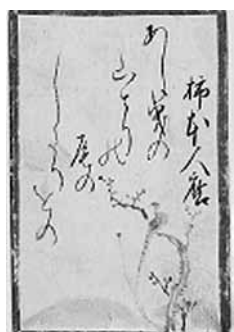 柿本人麿
あし曳の
山とりの
尾の
しだりをの